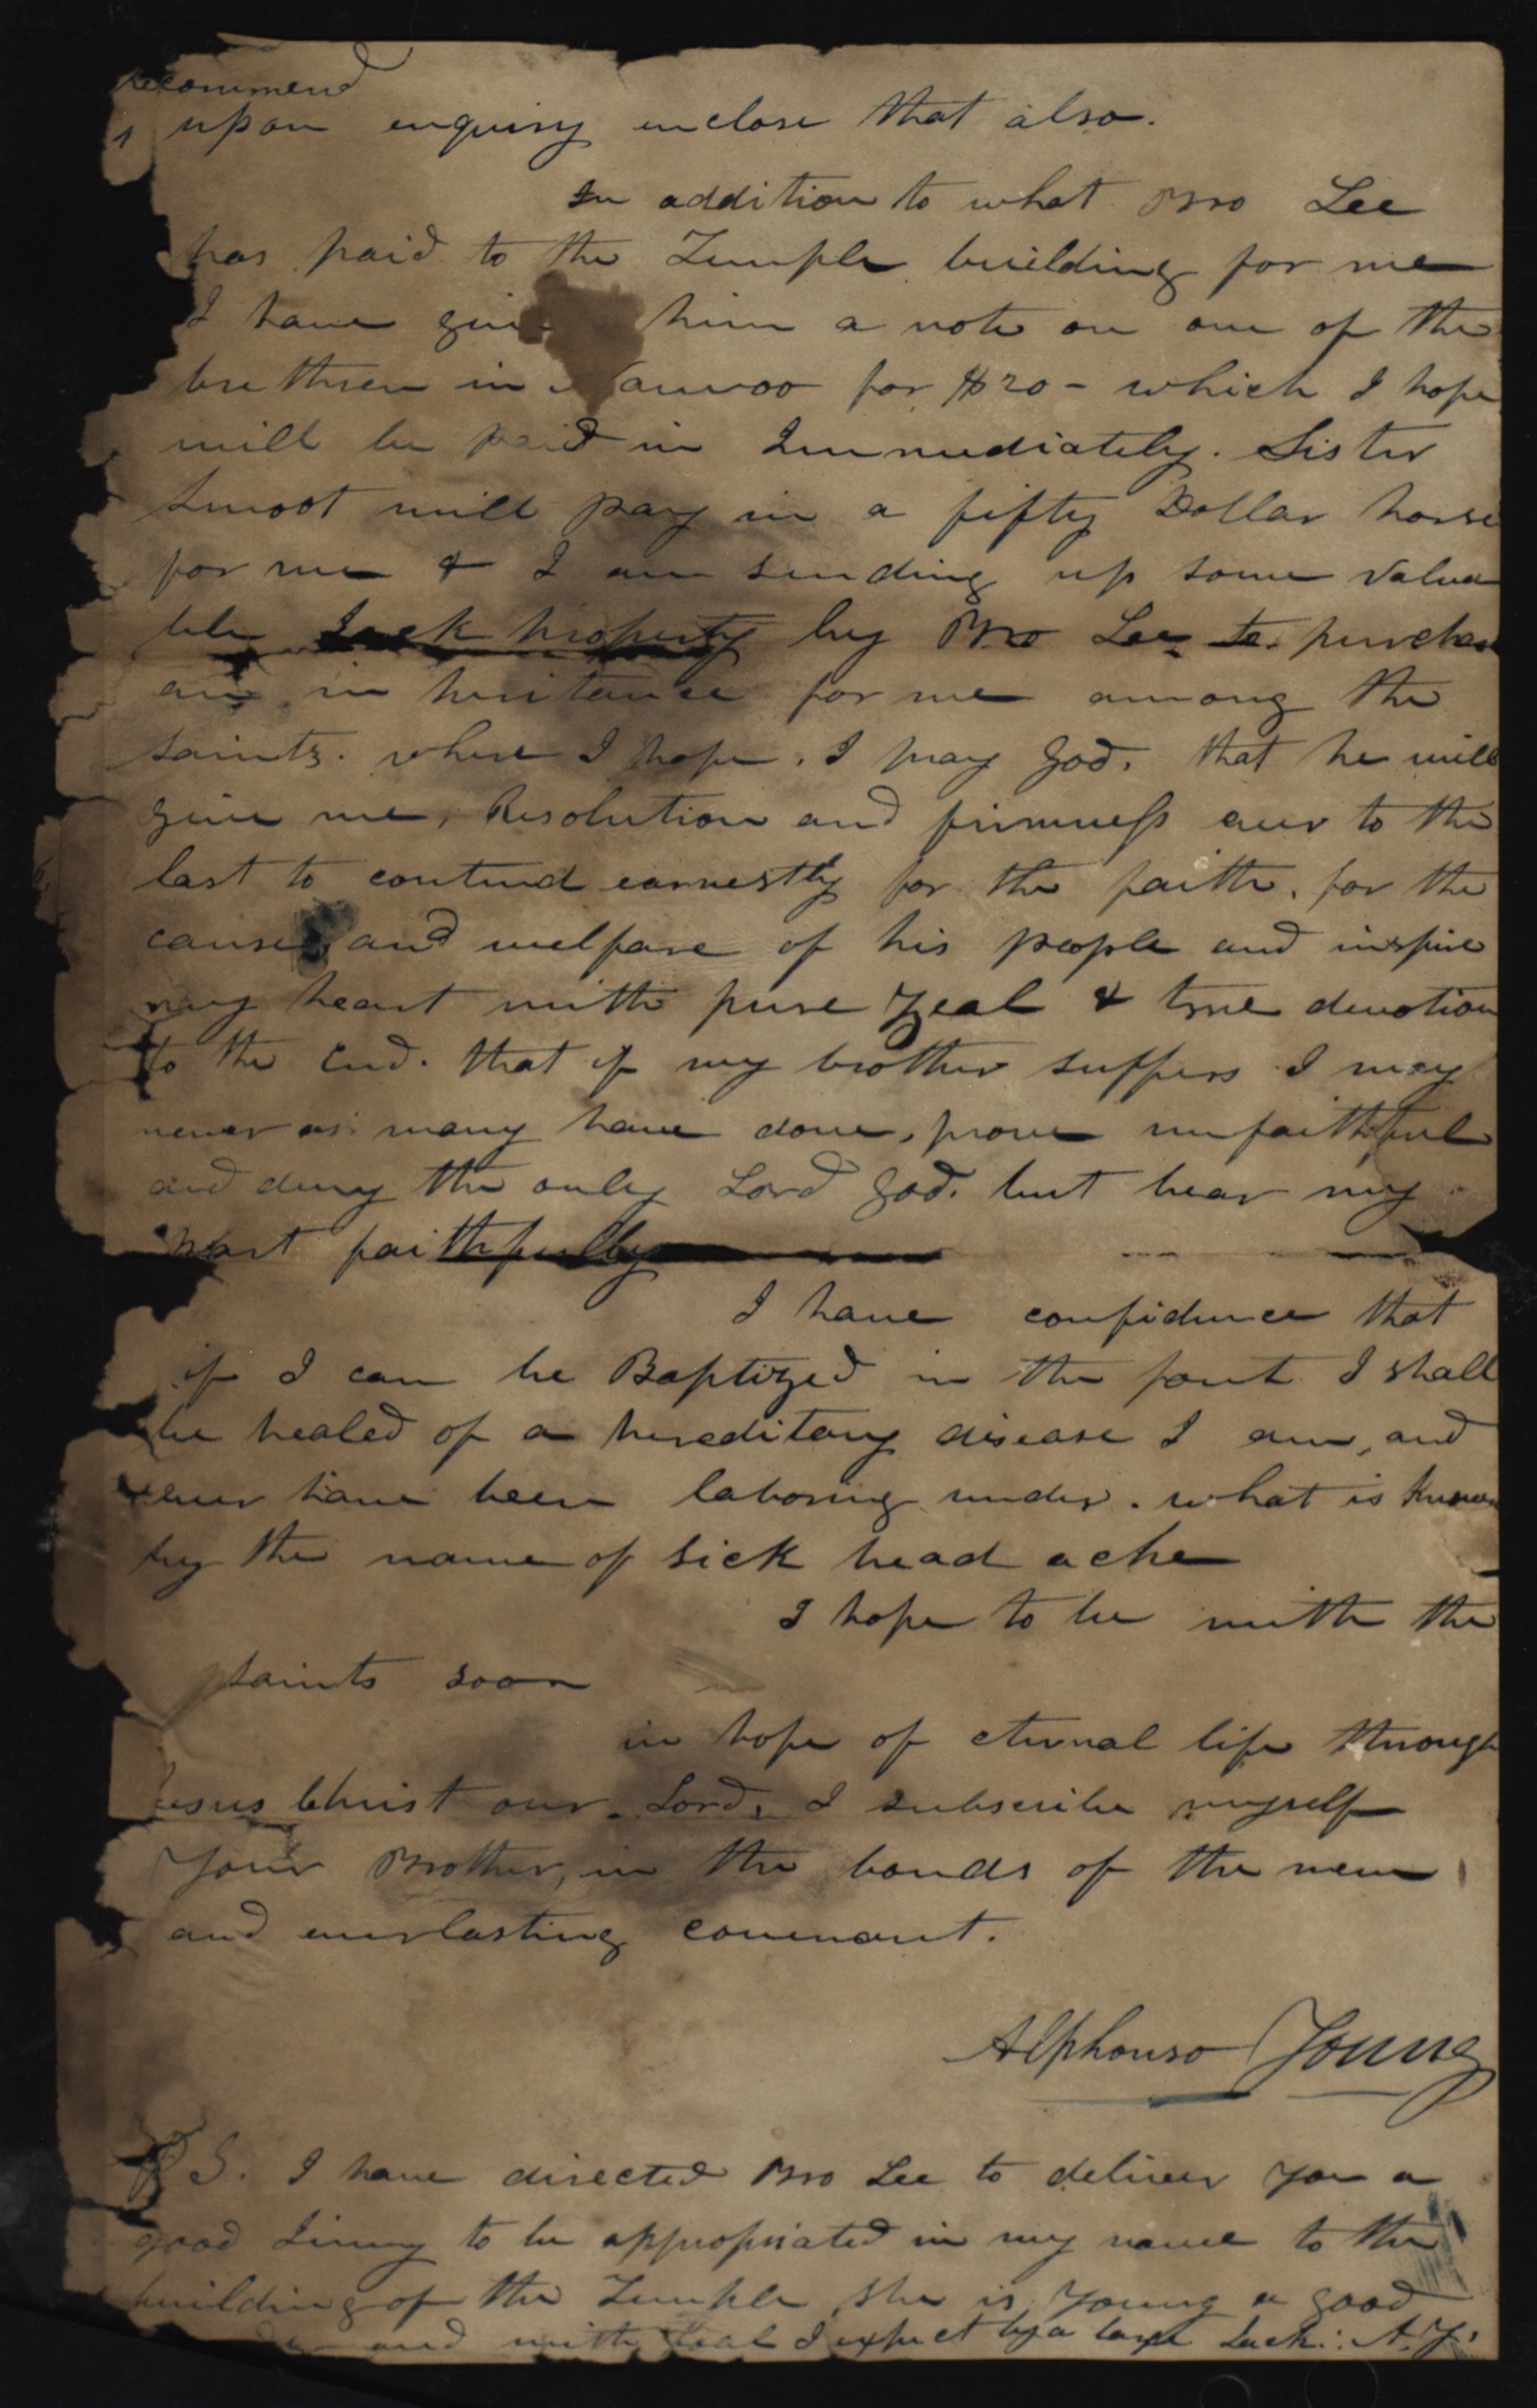 recommend
upon enquiry enclose that also.
In addition to what Bro Lee
has paid to the Temple building for me
I have him a note on one of the
brethren in Nauvoo for $20 - which I hope
will be paid in Immediately. Sister
Smoot will pay in a fifty Dollar horse
for me & I am sending up some valua
ble Jack property by Bro Lee to purchas
an in heritance for me among the
saints. where I hope, I pray God, that he will
give me, Resolution and firmness ever to the
last to contend earnestly for the faith, for the
cause and welfare of his people and inspire
my heart with pure zeal & true devotion
to the End. that if my brother suffers I may
never as many have done, prove unfaithful
and deny the only Lord God. but bear my
part faithfully
I have confidence that
if I can be Baptized in the font I shall
be healed of a hereditary disease I am, and
ever have been laboring under. what is known
by the name of sick head ache
I hope to be with the
saints soon
in hope of eternal life through
Jesus Christ our Lord, I subscribe myself
Your Brother, in the bonds of the new
and everlasting covenant.
Alphonso Young
P S. I have directed Bro Lee to deliver you a
good Jinny to be appropriated in my name to the
building of the Temple she is young a good
and with foal I expect by a large Jack. A. Y.